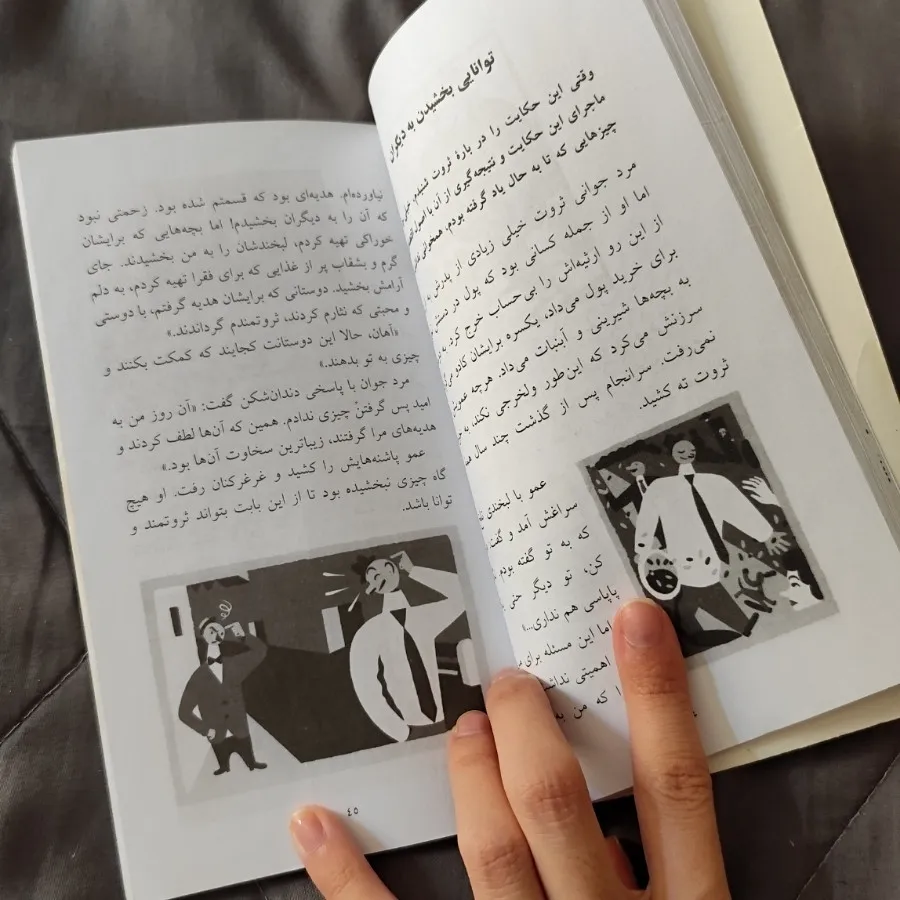 توانایی بخشیدن به دیگران
وقتی این حکایت را در بارهٔ ثروت شنیدم،
ماجرای این حکایت و نتیجه‌گیری از آن با اصول
چیزهایی که تا به حال یاد گرفته بودم، همخوانی
مرد جوانی ثروت خیلی زیادی از پدرش به
اما او از جمله کسانی بود که پول در دستش
از این رو ارثیه‌اش را بی‌حساب خرج کرد. به
برای خرید پول می‌داد، یکسره برایشان کادو
به بچه‌ها شیرینی و آبنبات می‌داد. هرچه عمویش
سرزنش می‌کرد که این‌طور ولخرجی نکند، به
نمی‌رفت. سرانجام پس از گذشت چند سال
ثروت ته کشید.
عمو با لبخندی
سراغش آمد و گفت
که به تو گفته بودم
کن، تو دیگر حتی
پاپاسی هم نداری...»
اما این مسئله برای
اهمیتی نداشت
که من به
نیاورده‌ام. هدیه‌ای بود که قسمتم شده بود. زحمتی نبود
که آن را به دیگران بخشیدم! اما بچه‌هایی که برایشان
خوراکی تهیه کردم، لبخندشان را به من بخشیدند. جای
گرم و بشقاب پر از غذایی که برای فقرا تهیه کردم، به دلم
آرامش بخشید. دوستانی که برایشان هدیه گرفتم، با دوستی
و محبتی که نثارم کردند، ثروتمندم گرداندند.»
«آهان، حالا این دوستانت کجایند که کمکت بکنند و
چیزی به تو بدهند.»
مرد جوان با پاسخی دندان‌شکن گفت: «آن روز من به
امید پس گرفتن چیزی ندادم. همین که آن‌ها لطف کردند و
هدیه‌های مرا گرفتند، زیباترین سخاوت آن‌ها بود.»
عمو پاشنه‌هایش را کشید و غرغرکنان رفت. او هیچ
گاه چیزی نبخشیده بود تا از این بابت بتواند ثروتمند و
توانا باشد.
۴۵